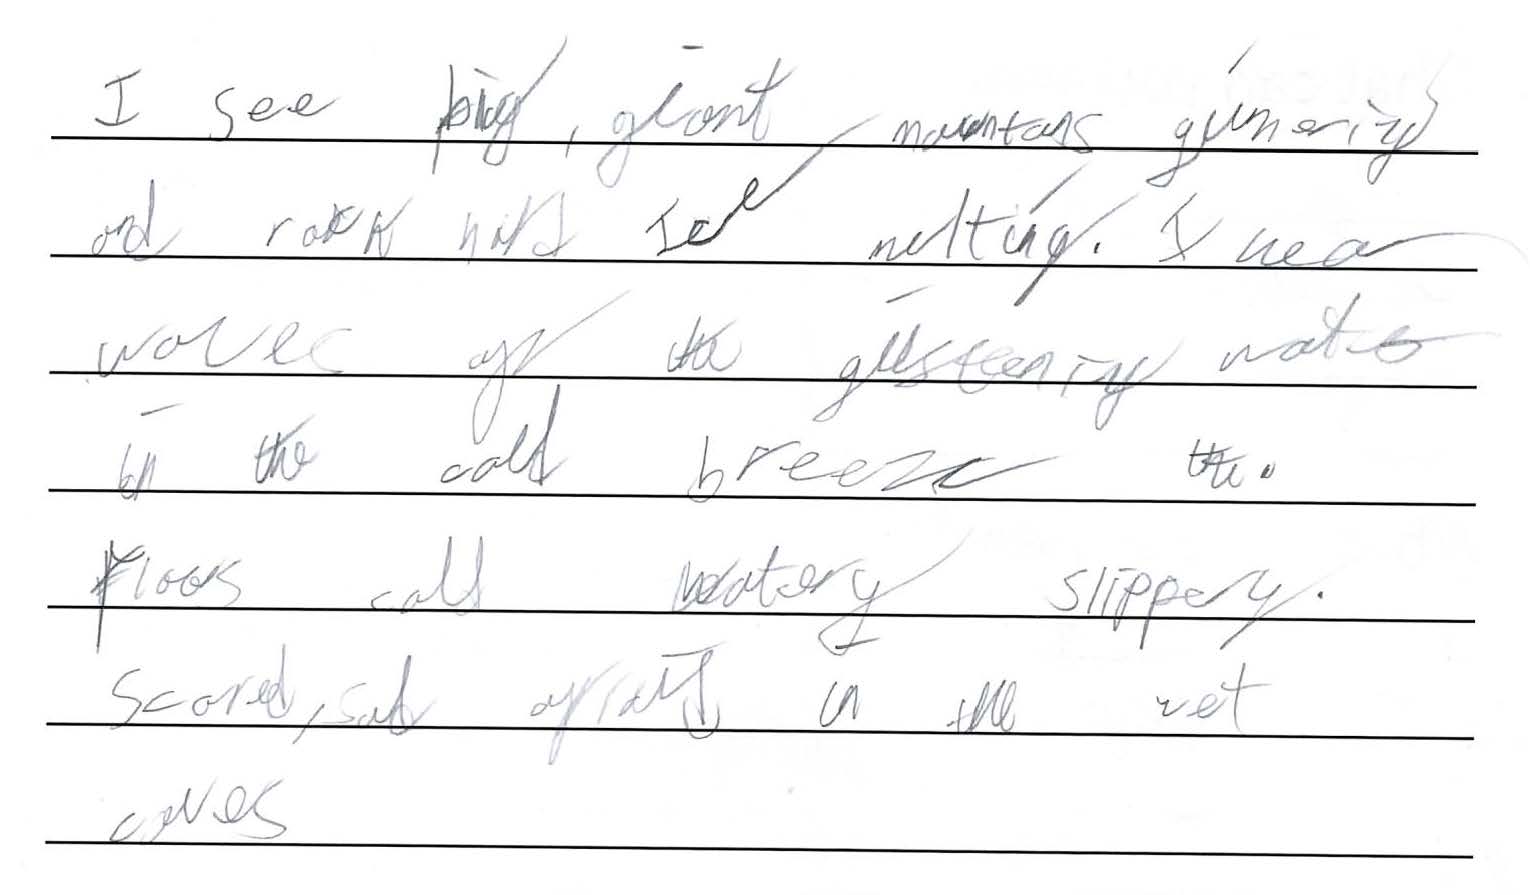 I see big, giant mountans glimering
and rock Ice melting. I hear
waves of the glisteening water
in the cold breeze the.
Floors cold watery slippery.
Scared, sad afraid in the wet
caves